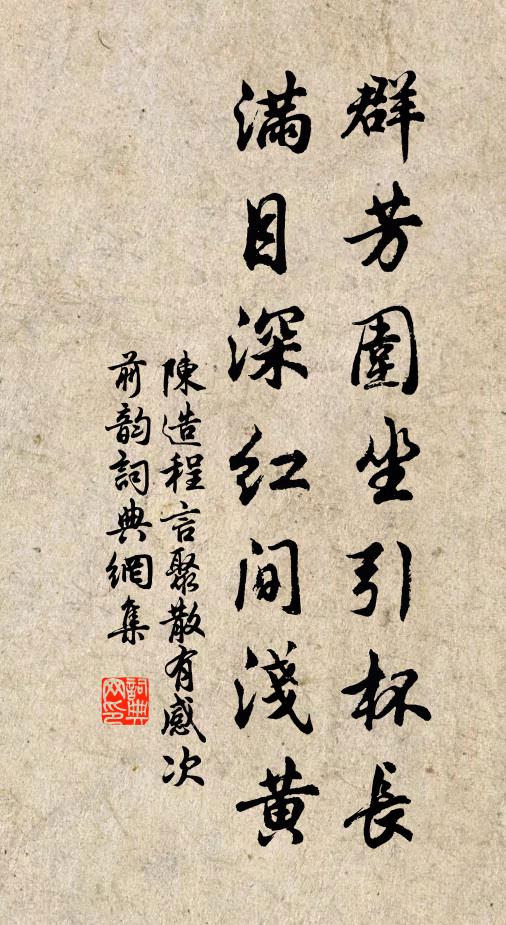 群芳圍坐引杯長
滿目深紅間淺黄
陳造程言聚散有感次
前韵詞典網集
詞典网印